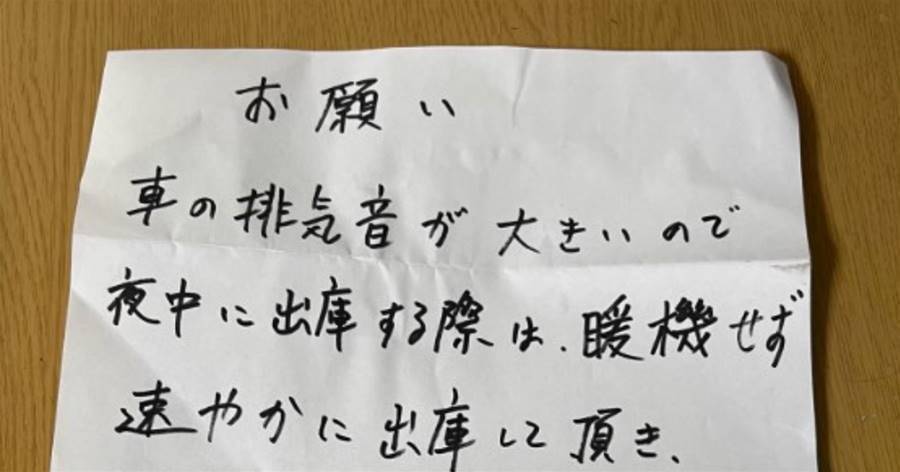 お願い
車の排気音が大きいので
夜中に出庫する際は、暖機せず
速やかに出庫して頂き、